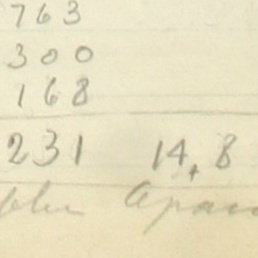 763
300
168
231 14,8